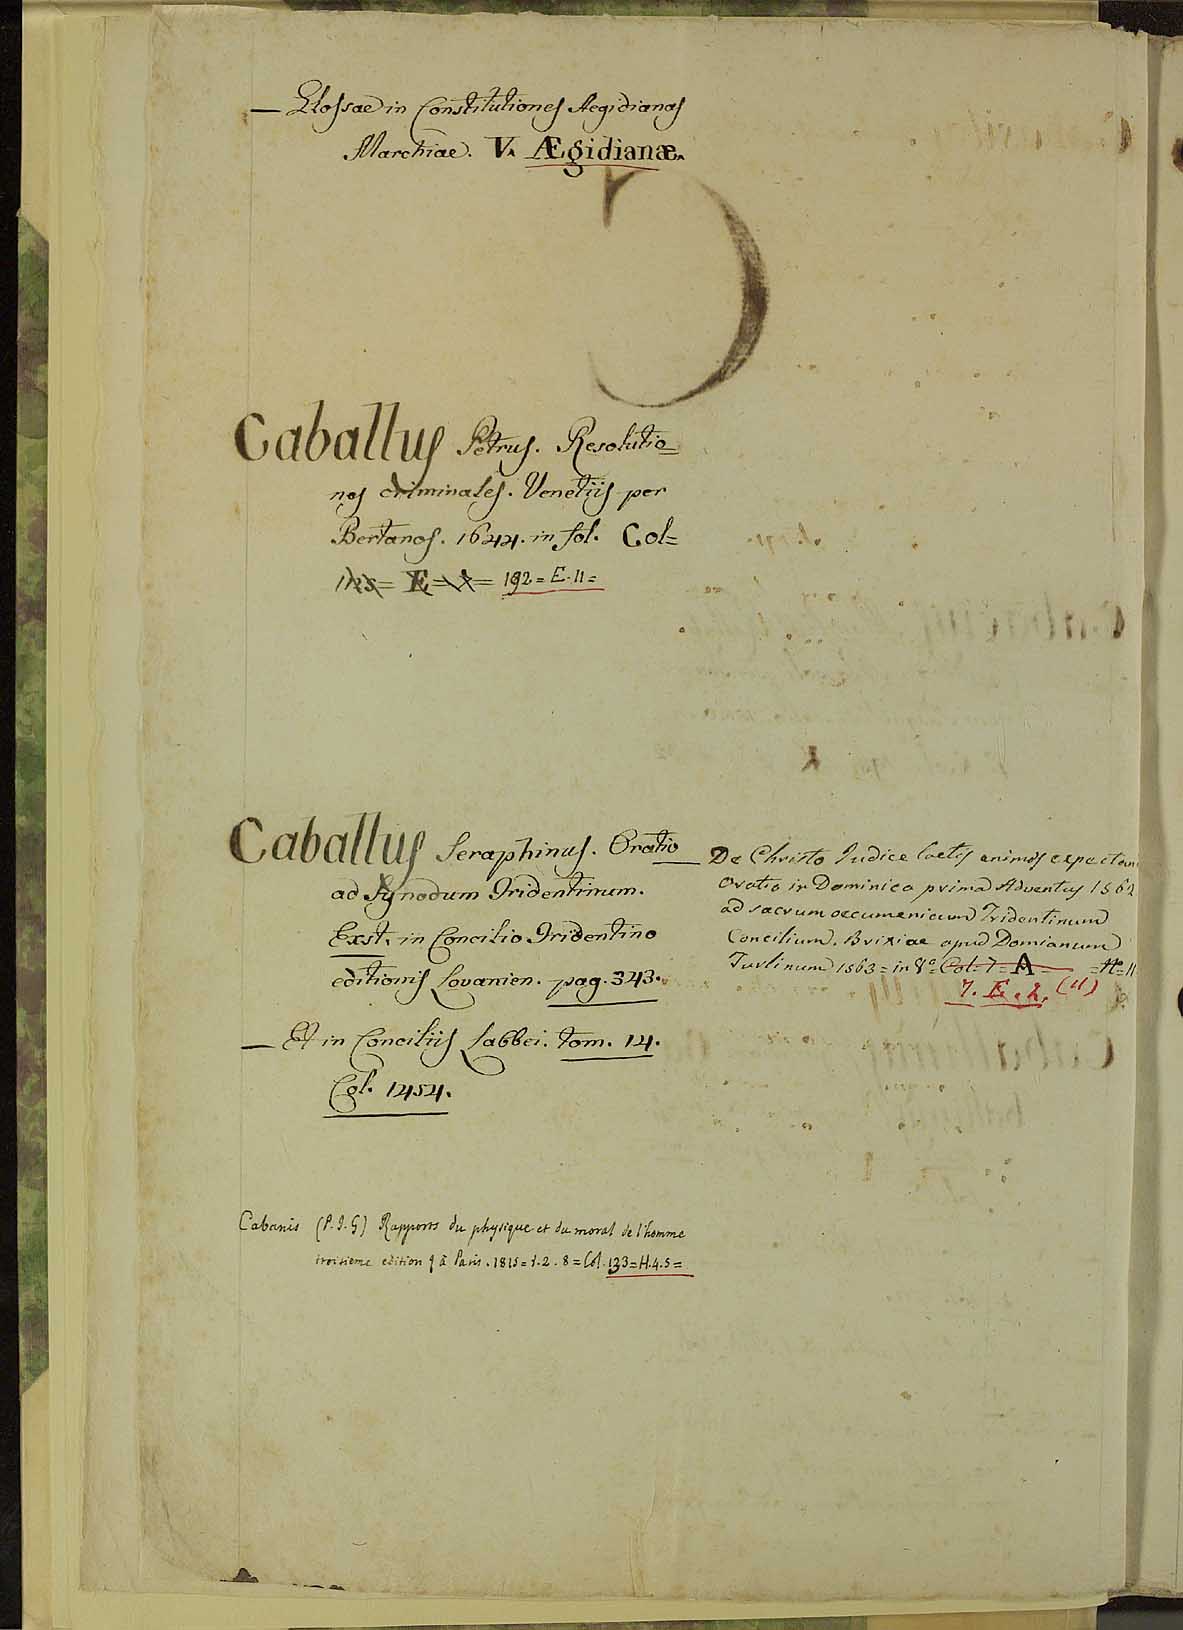 — Glossae in Constitutiones Aegidianas
Marchiae. V. Ægidianæ.
Caballus Petrus. Resolutio=
nes criminales. Venetiis per
Bertanos. 1644. in fol. Col=
= E = = 192 = E. 11 =
Caballus Seraphinus. Oratio
ad Synodum Tridentinum.
Exst. in Concilio Tridentino
editionis Lovanien. pag. 343.
— Et in Conciliis Labbei. tom. 14.
Col. 1454.
De Christo Iudice laetis animis expectan
Oratio in Dominica prima Adventus 1562
ad sacrum oecumenicum Tridentinum
Concilium. Brixiae apud Damianum
Turlinum 1563 = in 8° = Col. 7 = A = N° 11
7. E. 2. (11)
Cabanis (P. I. G) Rapports du physique et du moral de l'homme
troisieme edition à Paris. 1815 = t. 2. 8 = Col. 133 = H. 4. 5 =